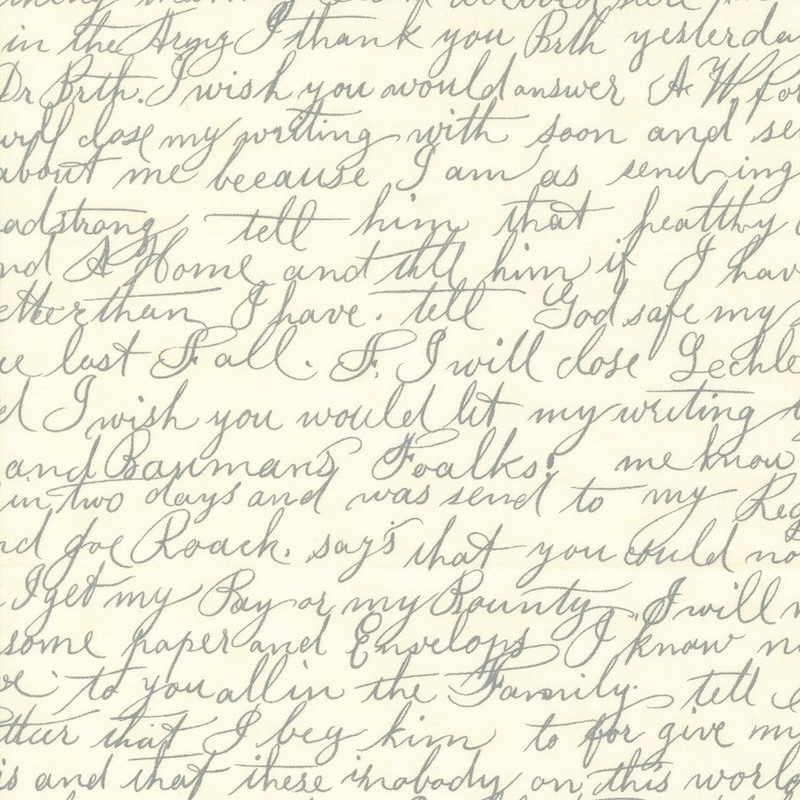 in the Army I thank you Brth yesterda
Dr Brth. I wish you would answer A W for
will close my writing with soon and se
about me because I am as sending
adstrong tell him that healthy
nd A Home and till him if I hav
etter than I have. tell God safe my
ue last Fall. F. I will close Lechle
d I wish you would lit my writing
and Baumans Foalks! me know
in two days and was send to my Reg
nd Joe Roack. say's that you could no
I get my Pay or my Bounty, I will
some paper and Envelops I know n
to you all in the Family. tell
that I beg him to for give my
is and that these inobody on this world